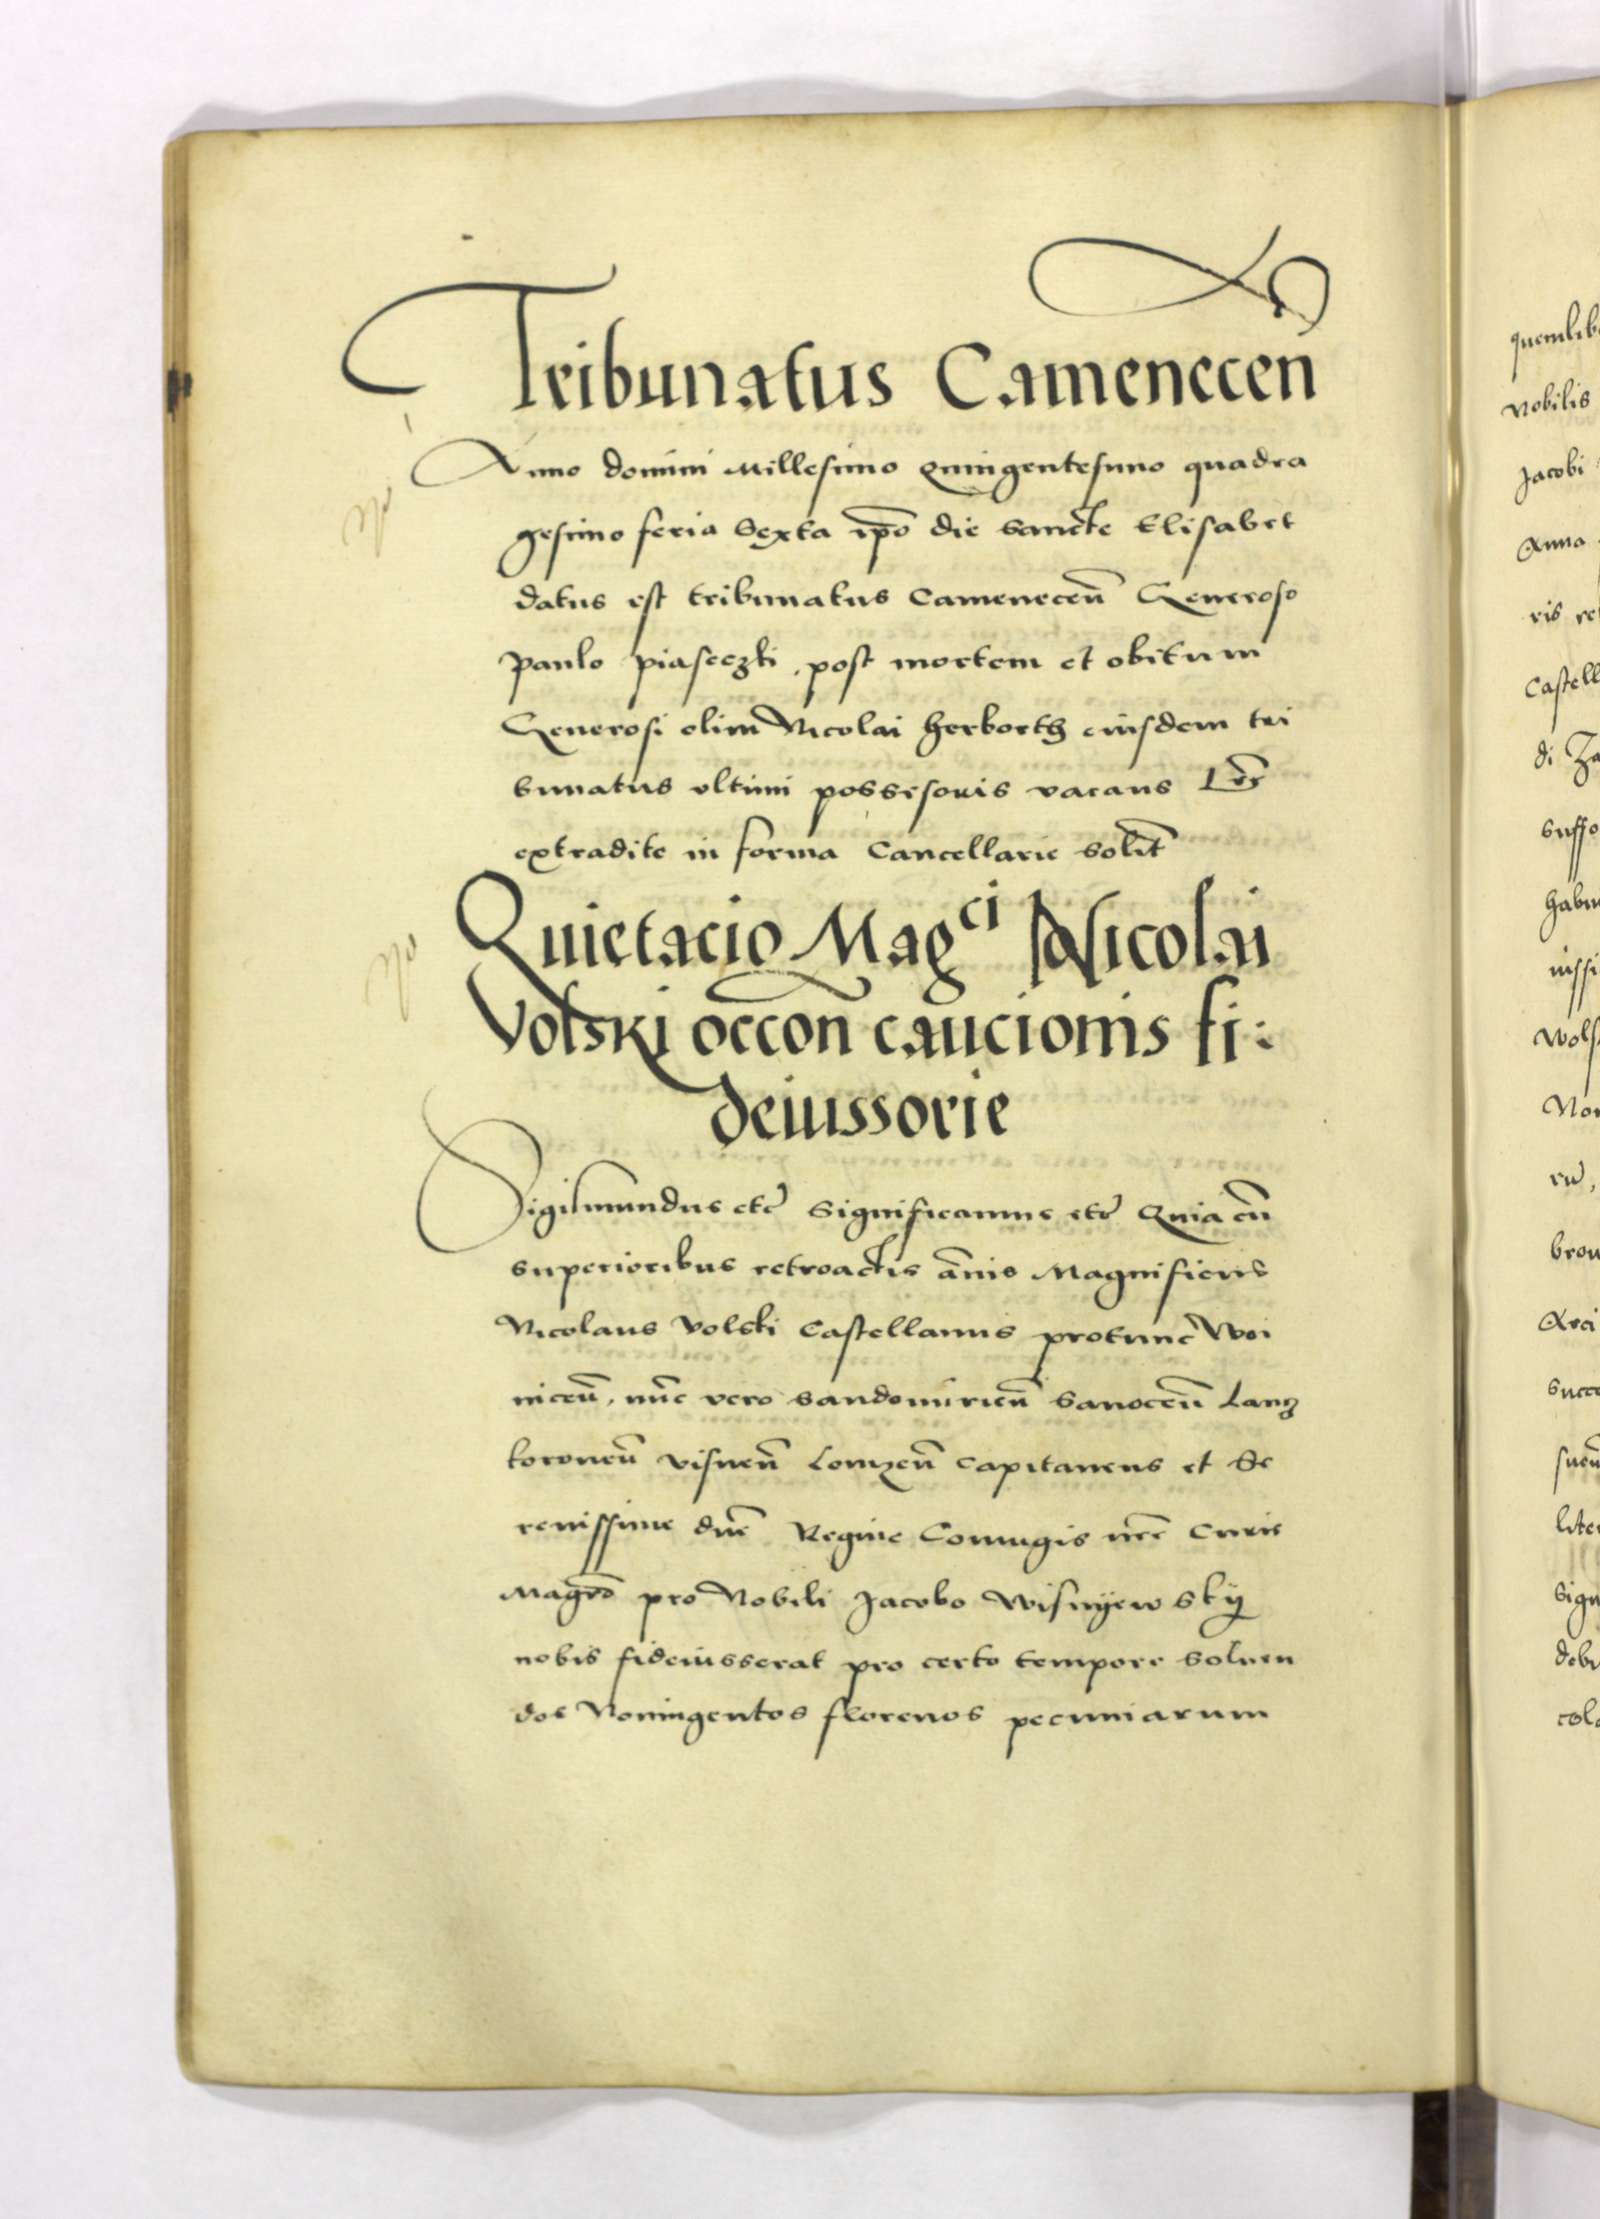 Tribunatus Camenecen
Anno domini Millesimo Quingentesimo quadra
gesimo feria Sexta ip̃o die sancte Elisabet
datus est tribunatus Cameneceñ Generoso
Paulo Piaseczki, post mortem et obitum
Generosi olim Nicolai herborth eiusdem tri
bunatus ultimi possesoris vacans Lr̃e
extradite in forma Cancellarie solit̃
Quietacio Magci Nicolai
Volski occon caucionis fi:
deiussorie
Sigismundus etc̃ Significamus etc̃ Quia cũ
superioribus retroactis ãnis Magnificus
Nicolaus Volski Castellanus protunc Woi
niceñ, nũc vero sandomirieñ Sanoceñ Lanz
koroneñ visneñ Lomzeñ Capitaneus et Se
renissime dñe Regine Coniugis nr̃e Curie
Magr̃o pro Nobili Jacobo Wisnyewsky
nobis fideiusserat pro certo tempore soluen
dos Noningentos florenos pecuniarum
quemlib
Nobilis
Jacobi
Anna
ris
Castell
di Za
suffo
habu
Wols
Nor
brow
succe
liter
Sign
debi